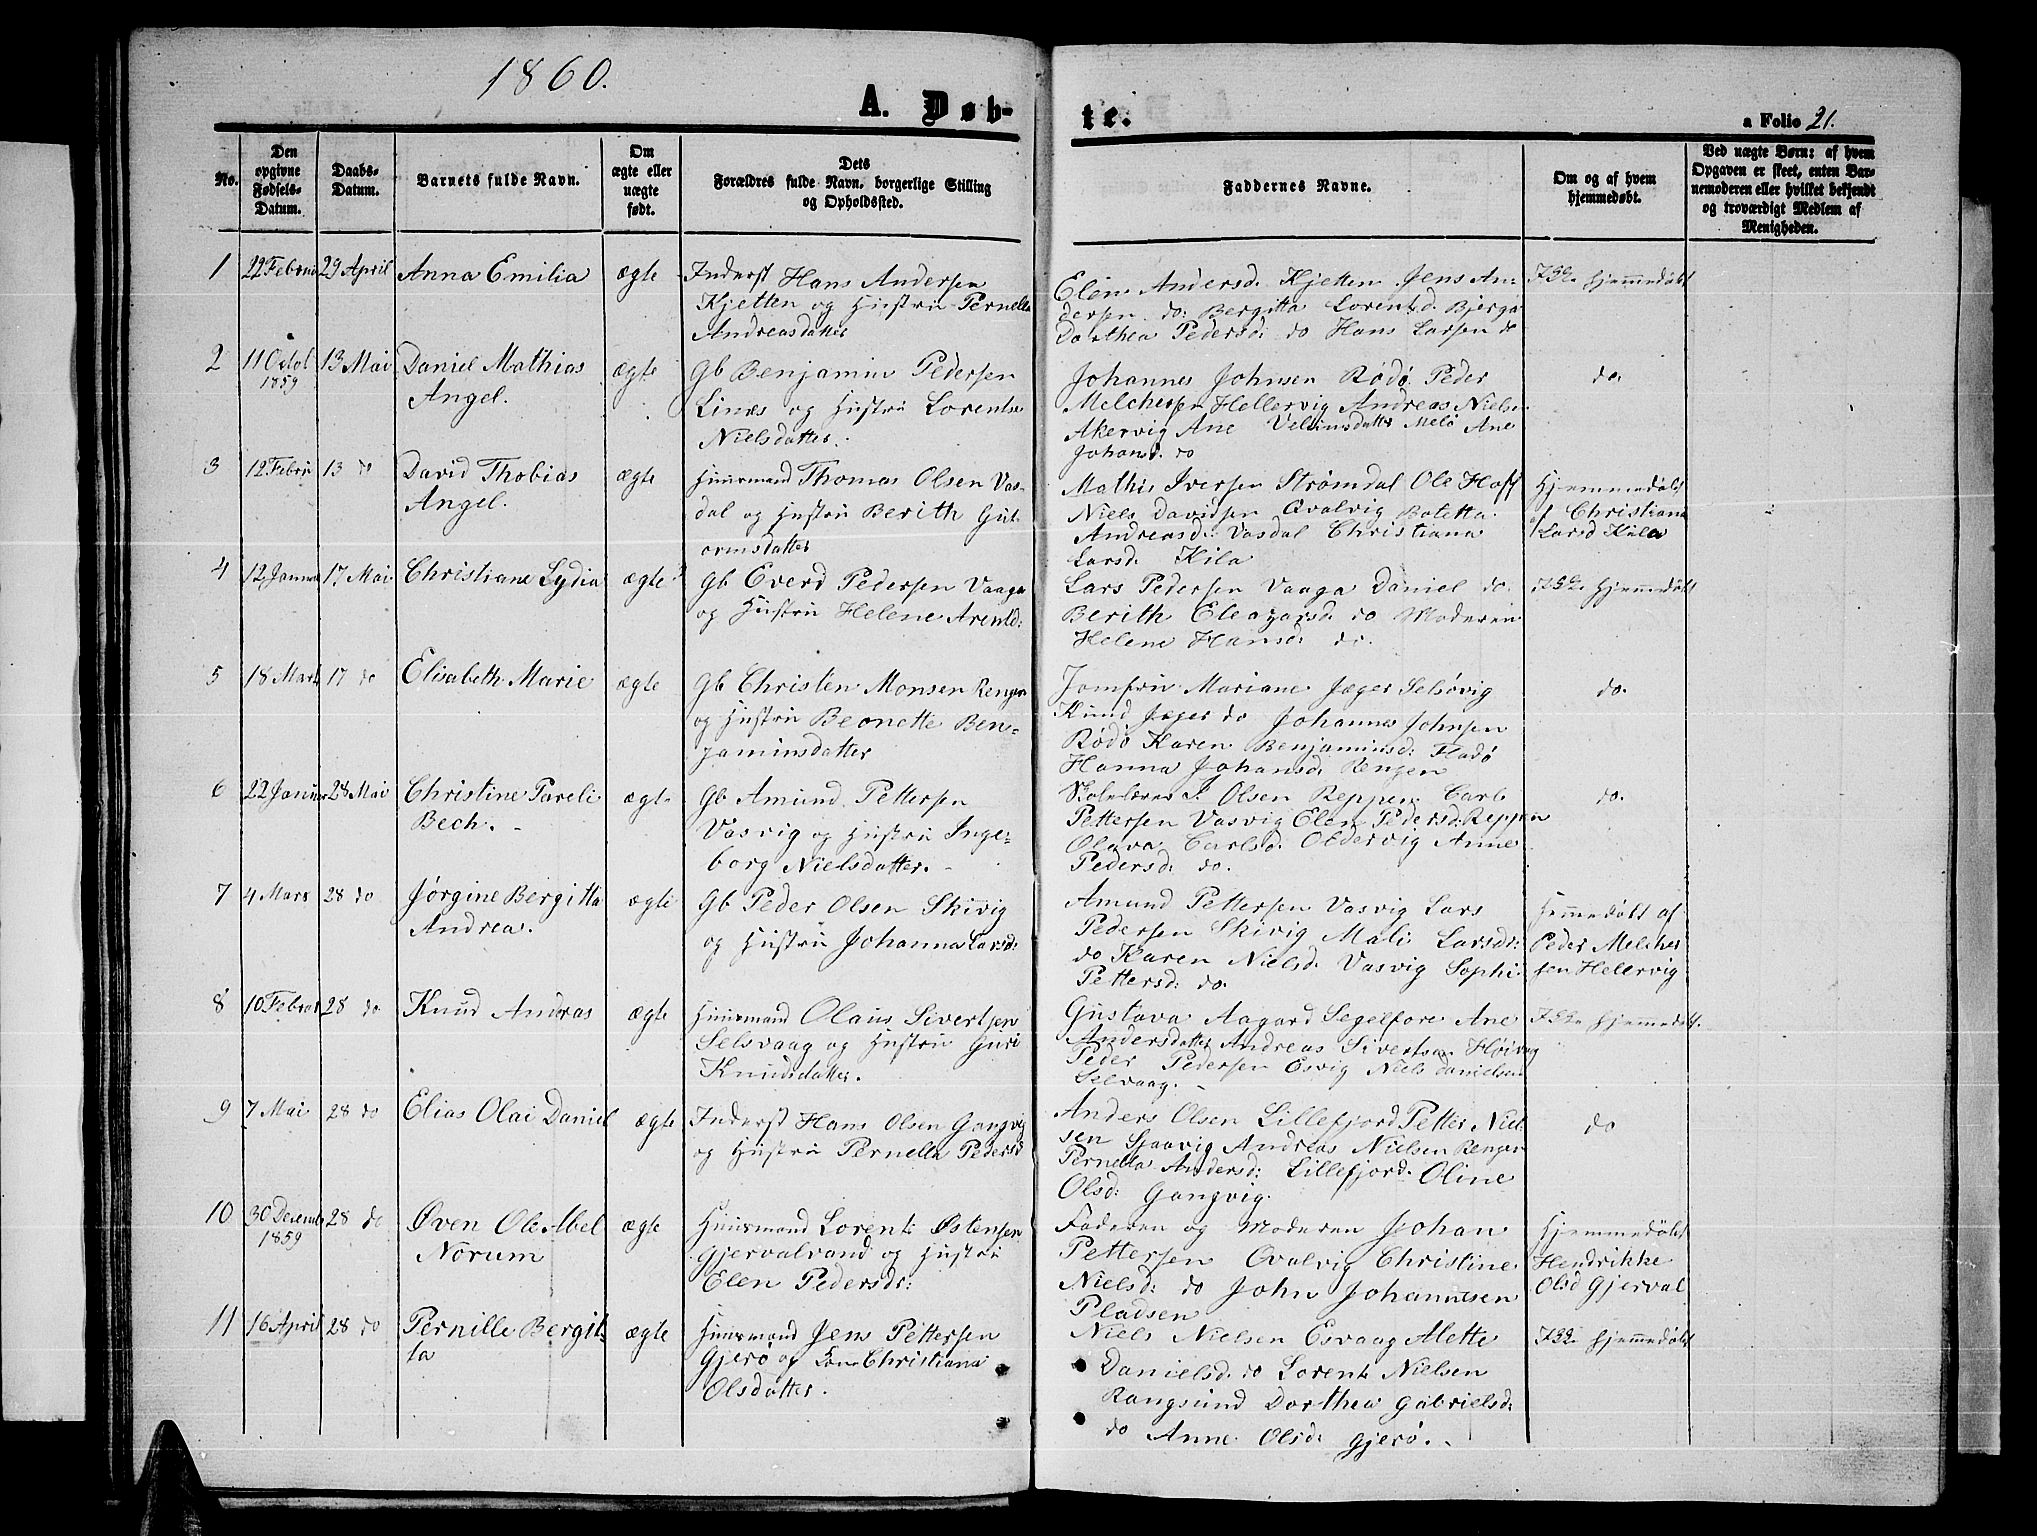 1860.
A. Døb-
te.
a Folio 21.
No.
Den
opgivne
Fødsels-
Datum.
Daabs-
Datum.
Barnets fulde Navn.
Om
ægte eller
uægte
født.
Dets
Forældres fulde Navn, borgerlige Stilling
og Opholdssted.
Faddernes Navne.
Om og af hvem
hjemmedøbt.
Ved uægte Børn: af hvem
Opgaven er skeet, enten Bar-
nemoderen eller hvilket bekjendt
og troværdigt Medlem af
Menigheden.
1 22 Febrüi 29 April Anna Emilia ægte Inderst Hans Andersen
Kjetten og Hustrü Pernella
Andreasdatter
Elen Andersd. Kjetten Jens An-
dersen do. Bergitta Lorentsd. Bjerga
Dorthea Pedersd: do Hans Larsen do
hjemmedøbt
2 11 Octob 1859 13 Mai Daniel Mathias
Angel.
ægte Gb Benjamin Pedersen
Linæs og Hustrü Lorentse
Nielsdatter.
Johannes Johnsen Rødø Peder
Melchersen Hellervig Andreas Niels-
Akervig Ane Melø Ane
Johansd. do
do.
3 12 Febrü 13 do David Thobias
Angel.
ægte Hüüsmand Thomas Olsen Vas-
dal og Hustrü Berith Gut-
ormsdatter
Mathis Iversen Strømdal Ole Hoff
Niels Davidsen Qvalvig Botetta
Andreasd: Vasdal Christiana
Larsd. Kila
Hjemmedøbt
af Christiana
Larsd Kila
4 12 Janua 17 Mai Christiane Lydia ægte Gb Everd Pedersen Vaaga
og Hustrü Helene Arentd:
Lars Pedersen Vaaga Daniel do.
Berith Eleazarsd. do Moderen
Helene Hansd: do.
hjemmedøbt
5 18 Marts 17 do Elisabeth Marie ægte Gb Christen Monsen Rengen
og Hustrü Beonette Ben-
jaminsdatter
Jomfrü Mariane Jæger Selsøvig
Knud Jæger do Johannes Johnsen
Rødø Karen Benjaminsd: Fladø
Hanna Johansd. Rengen
do.
6 22 Januar 28 Mai Christine Pareli
Bech.
ægte Gb Amund Pettersen
Vasvig og Hustrü Inge-
borg Nielsdatter.
Skolelærer Olsen Reppen Carl
Pettersen Vasvig Elen Pedersd: Reppen
Olava Carlsd. Oldervig Anne
Pedersd: do.
do.
7 4 Mars 28 do Jørgine Bergitta
Andrea.
ægte Gb Peder Olsen Skivig
og Hustrü Johanna Larsd:
Amund Pettersen Vasvig Lars
Pedersen Skivig Mali Larsdr:
do Karen Nielsd. Vasvig Sophi
Pettersd: do.
Hemmedøbt af
Peder Melcher
sen Helervig
8 10 Februar 28 do Knud Andreas ægte Hüüsmand Olaus Sivertsen
Selsvaag og Hustrü Guri
Knudsdatter.
Gustava Aagard Segelfore Ane
Andersdatter Andreas Sivertsen Høivag
Peder Pedersen Esvig Niels Danielsen
Selvaag.
hjemmedøbt.
9 7 Mai 28 do Elias Olai Daniel ægte Inderst Hans Olsen Gangvig
og Hustrü Pernella Pedersd
Anders Olsen Lillefjord Petter Niel-
sen Sjaavig Andreas Nielsen Renger
Pernella Andersd: Lillefjord. Oline
Olsd: Gangvig.
do
10 30 Decemb 1859 28 do Øven Ole Abel
Norum
ægte Hüüsmand Lorents Østensen
Gjervalvand og Hustrü
Elen Pedersdr:
Faderen og Moderen Johan
Pettersen Qvalvig Christine
Nielsd: do John Johannesen
Pladsen
Hjemmedøbt
Hendrikke
Olsd Gjerval
11 16 April 28 do Pernille Bergit-
ta
ægte Hüüsmand Jens Pettersen
Gjerø og Kone Christiana
Olsdatter.
Niels Nielsen Esvaag Alette
Danielsd. do Lorents Nielsen
Rangsund Dorthea Gabrielsd:
do Anne Olsd: Gjerø.
hjemmedøbt